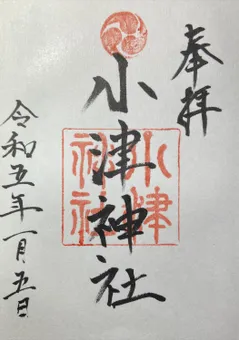 奉拝
小津神社
小津神社
令和五年一月五日